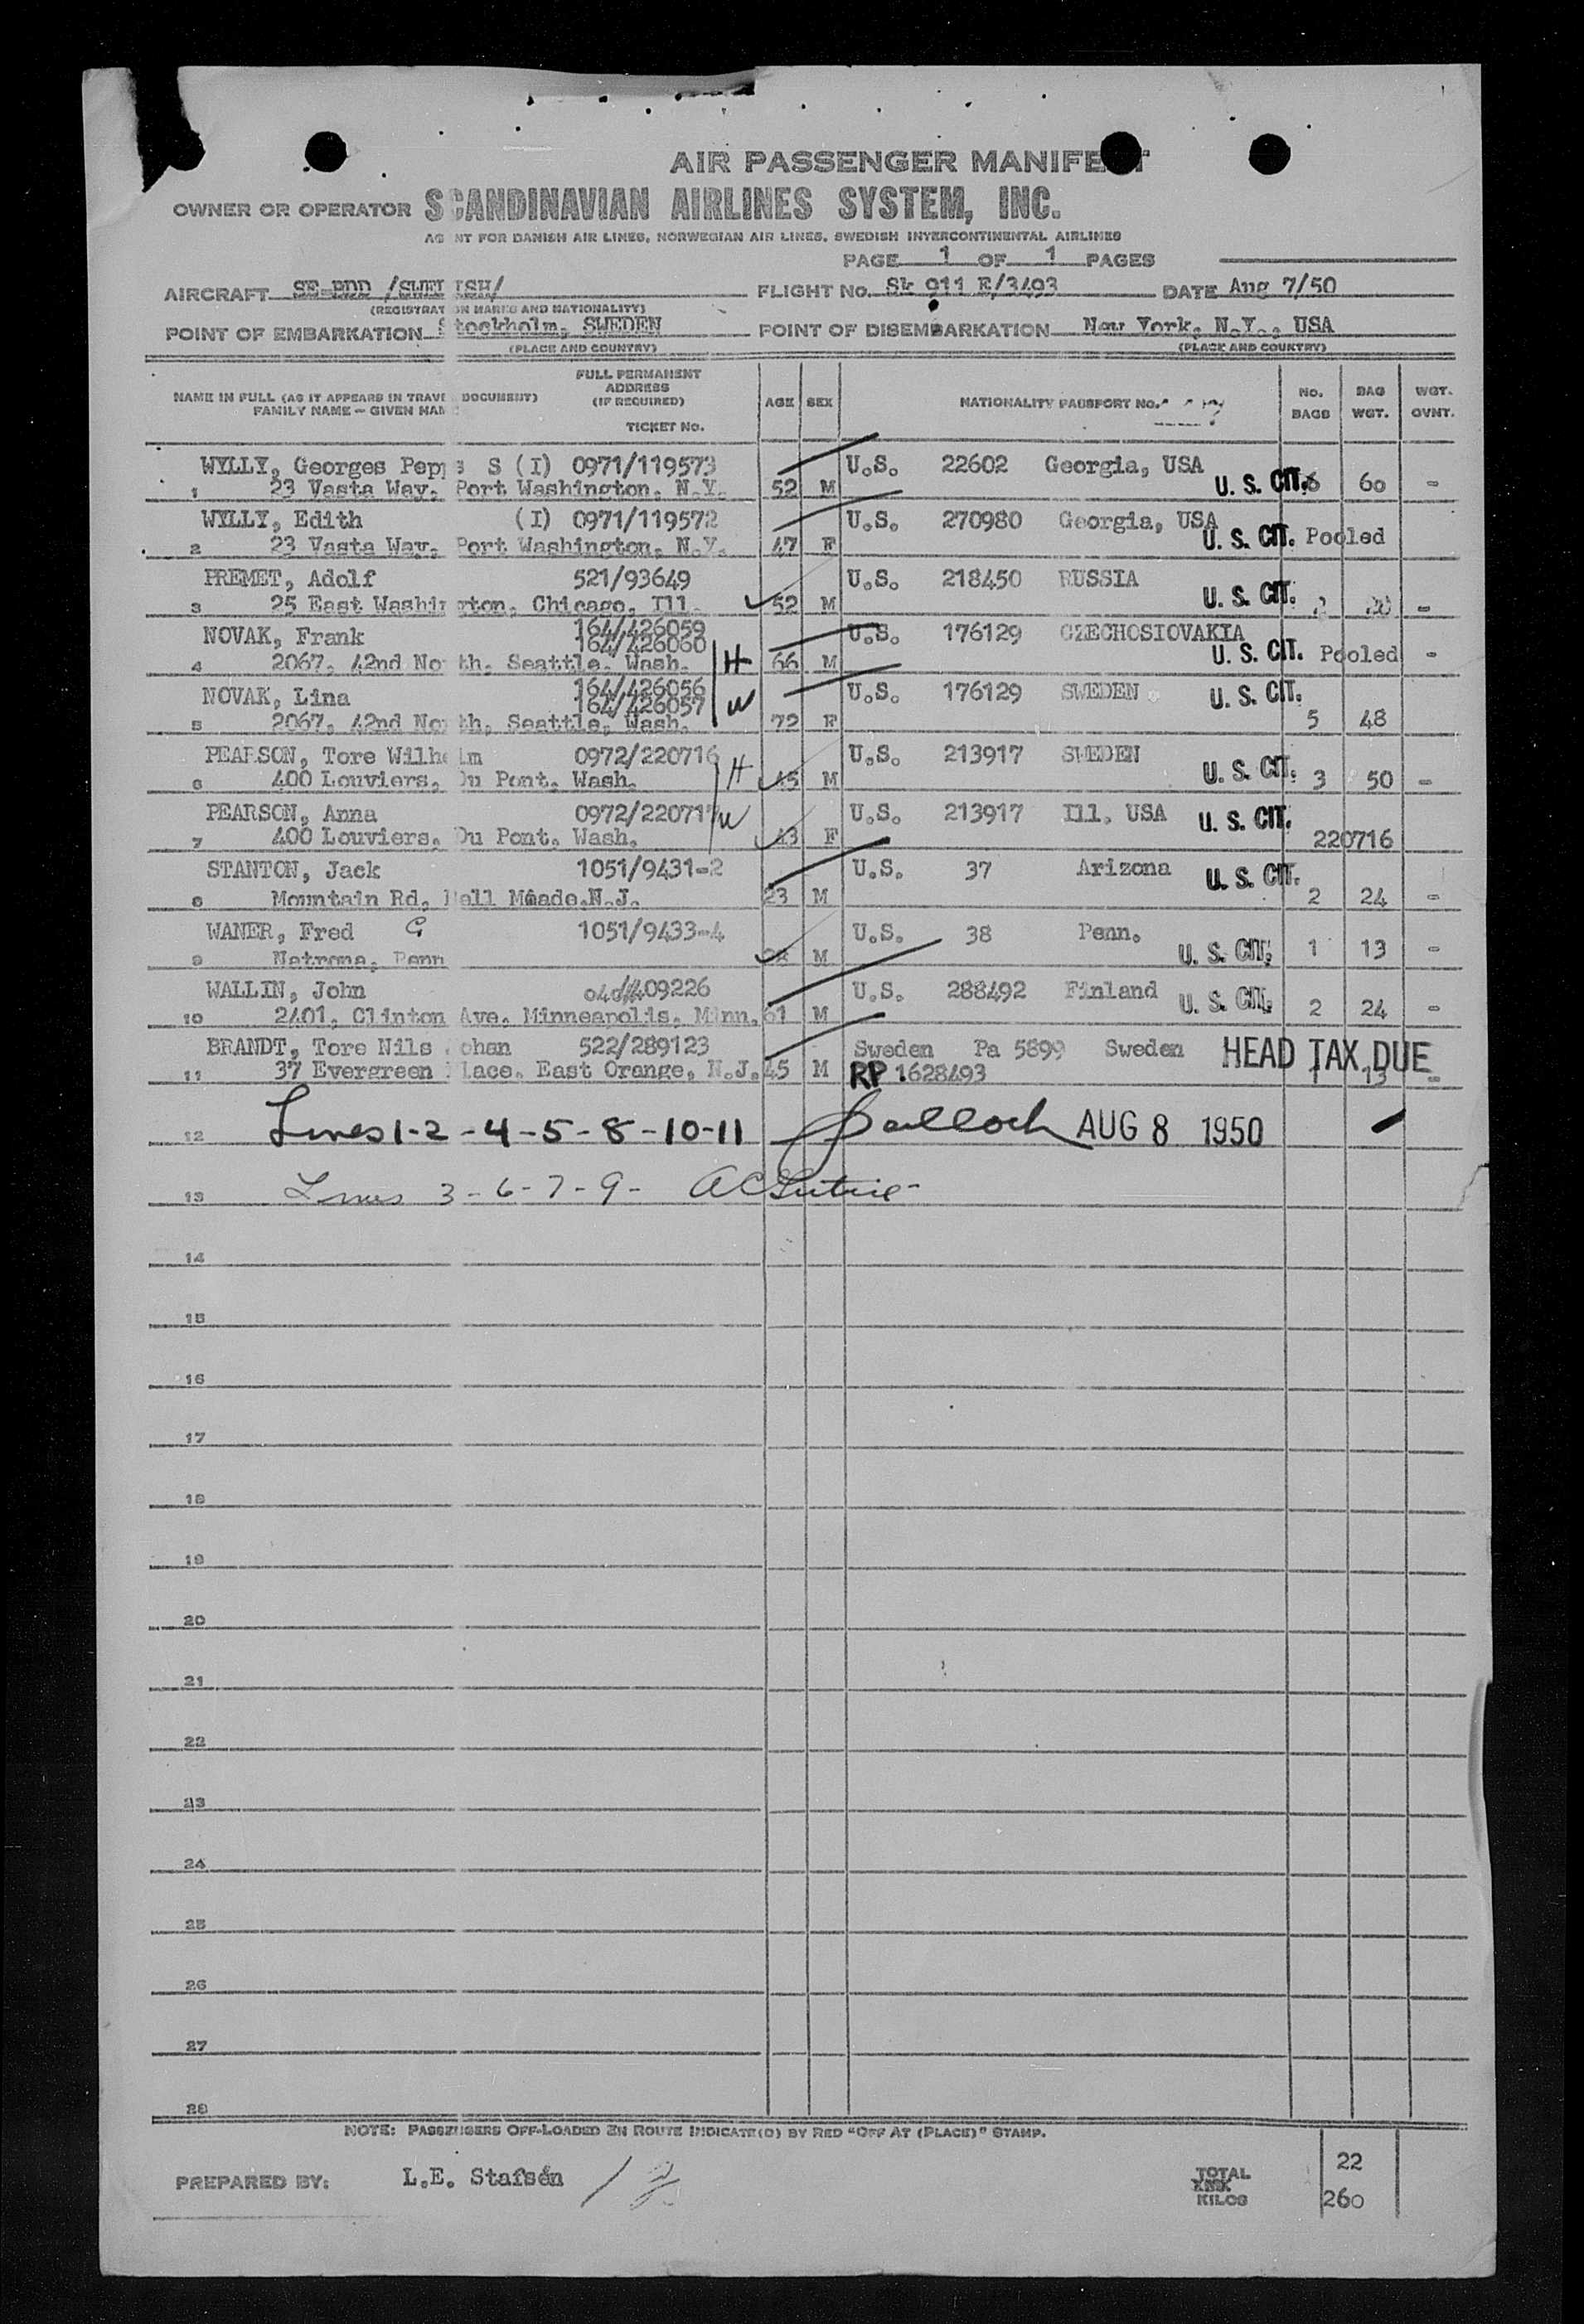 AIR PASSENGER MANIFE T
OWNER OR OPERATOR SCANDINAVIAN AIRLINES SYSTEM, INC.
AG NT FOR DANISH AIR LINES, NORWEGIAN AIR LINES, SWEDISH INTERCONTINENTAL AIRLINES
PAGE 1 OF 1 PAGES
AIRCRAFT SE-BDD /SWEDISH/ FLIGHT NO. Sk 911 E/3493 DATE Aug 7/50
(REGISTRATION MARKS AND NATIONALITY)
POINT OF EMBARKATION Stockholm, SWEDEN POINT OF DISEMBARKATION New York, N.Y., USA
(PLACE AND COUNTRY) (PLACE AND COUNTRY)
NAME IN FULL (AS IT APPEARS IN TRAVEL DOCUMENT) FAMILY NAME - GIVEN NAME FULL PERMANENT ADDRESS (IF REQUIRED) TICKET NO. AGE SEX NATIONALITY PASSPORT NO. NO. BAGS BAG WGT. WGT. OVNT.
WYLLY, Georges Pepp s S (I) 0971/119573 U.S. 22602 Georgia, USA
1 23 Vasta Way, Port Washington, N.Y. 52 M U. S. CIT. 6 60 -
WYLLY, Edith (I) 0971/119572 U.S. 270980 Georgia, USA
2 23 Vasta Way, Port Washington, N.Y. 47 F U. S. CIT. Pooled
PREMET, Adolf 521/93649 U.S. 218450 RUSSIA
3 25 East Washington, Chicago, Ill. 52 M U. S. CIT. 2 -
NOVAK, Frank 164/426059 164/426060 U.S. 176129 CZECHOSLOVAKIA
4 2067, 42nd North, Seattle, Wash. H 66 M U. S. CIT. Pooled -
NOVAK, Lina 164/426056 164/426057 U.S. 176129 SWEDEN U. S. CIT.
5 2067, 42nd North, Seattle, Wash. W 72 F 5 48
PEARSON, Tore Wilhelm 0972/220716 U.S. 213917 SWEDEN
6 400 Louviers, Du Pont, Wash. H 45 M U. S. CIT. 3 50 -
PEARSON, Anna 0972/220717 U.S. 213917 Ill. USA U. S. CIT.
7 400 Louviers, Du Pont, Wash. W 43 F 220716
STANTON, Jack 1051/9431-2 U.S. 37 Arizona U. S. CIT.
8 Mountain Rd, N.J. 23 M 2 24 -
WANER, Fred G 1051/9433-4 U.S. 38 Penn.
9 Natrona, Penn M U. S. CIT. 1 13 -
WALLIN, John 409226 U.S. 288492 Finland U. S. CIT.
10 2401, Clinton Ave. Minneapolis, Minn. 61 M 2 24 -
BRANDT, Tore Nils Johan 522/289123 Sweden Pa 5899 Sweden HEAD TAX DUE
11 37 Evergreen Place, East Orange, N.J. 45 M RP 1628493 1 13 -
12 Lines 1-2-4-5-8-10-11 AUG 8 1950
13 Lines 3-6-7-9-
14
15
16
17
18
19
20
21
22
23
24
25
26
27
28
NOTE: PASSENGERS OFF-LOADED EN ROUTE INDICATE(D) BY RED "OFF AT (PLACE)" STAMP.
PREPARED BY: L.E. Stafsén TOTAL 22
KILOS 260